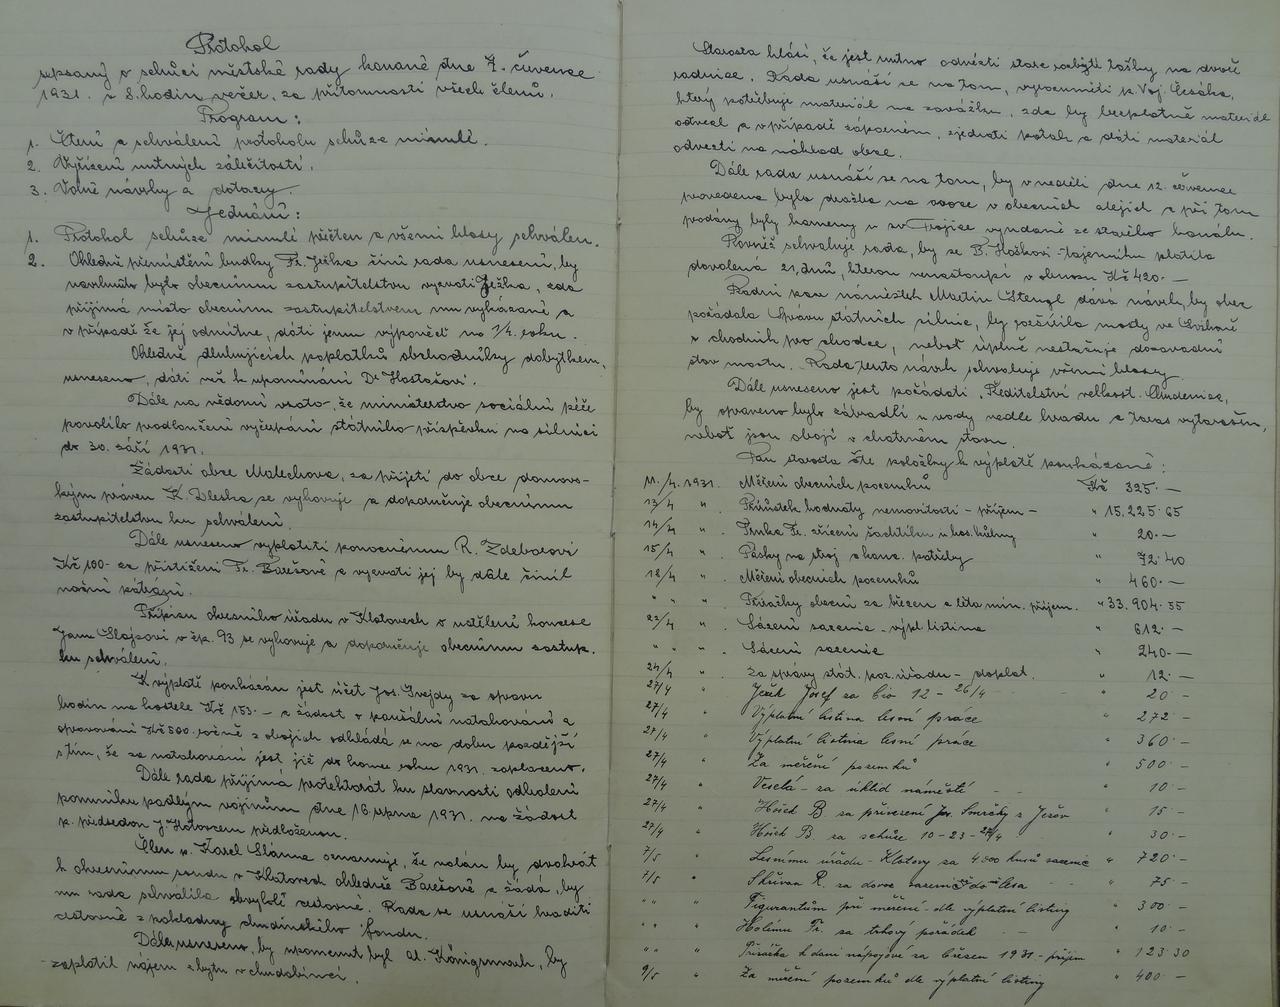 Protokol
sepsaný o schůzi městské rady konané dne 7. července
1931. v 8. hodin večer, za přítomnosti všech členů.
Program:
1. Čtení a schválení protokolu schůze minulé.
2. Vyřízení nutných záležitostí.
3. Volné návrhy a dotazy.
Jednání:
1. Protokol schůze minulé přečten a všemi hlasy schválen.
2. Ohledně přemístění budky Fr. Ježka činí rada usnesení, by
navrhnuto bylo obecnímu zastupitelstvu vyzvati Ježka, zda
přijímá místo obecním zastupitelstvem mu vykázané a
v případě že jej odmítne, dáti jemu výpověď na 1/4. roku.
Ohledně dluhujících poplatků obchodníky dobytkem,
usneseno, dáti vše k upomínání Dr Hostašovi.
Dále na vědomí vzato, že ministerstvo sociální péče
povolilo prodloužení vyčerpání státního příspěvku na silnici
do 30. září 1931.
Žádosti obce Malechova, za přijetí do obce domovs-
kým právem K. se vyhovuje a doporučuje obecnímu
zastupitelstvu ku schválení.
Dále usneseno vyplatiti ponocnému R. Zdeborovi
Kč 100- za přistižení Fr. Barešové a vyzvati jej by dále činil
noční pátrání.
Přípisu okresního úřadu v Klatovech o udělení koncese
Janu Slajsovi v čp. 93 se vyhovuje a doporučuje obecnímu zastup.
ku schválení.
K výplatě poukázán jest účet Jos. Gvejdy za opravu
hodin na kostele Kč 153.- a žádost o paušální natahování a
opravování Kč 500. ročně z obojích odkládá se na dobu pozdější
s tím, že za natahování jest již do konce roku 1931. zaplaceno.
Dále rada přijímá protektorát ku slavnosti odhalení
pomníku padlým vojínům dne 16. srpna 1931. na žádost
p. předsedou J. Kotorcem předloženou.
Člen p. Karel Slánna oznamuje, že volán byl dvakrát
k okresnímu soudu v Klatovech ohledně Barešové a žádá, by
mu rada schválila obvyklé cestovné. Rada se usnáší hraditi
cestovné z pokladny chudinského fondu.
Dále usneseno, by upomenut byl Al. Königsmark, by
zaplatil nájem z bytu v chudobinci.
Starosta hlásí, že jest nutno odvézti staré rozbité tašky na dvoře
radnice. Rada usnáší se na tom, vyrozuměti p. Voj. Cesáka,
který potřebuje materiál na zavážku, zda by bezplatně materiál
odvezl a v případě záporném, zjednati potah a dáti materiál
odvézti na náklad obce.
Dále rada usnáší se na tom, by v neděli dne 12. července
provedena byla dražba na ovoce v obecních alejích a při tom
prodány byly kameny u sv. Trojice vyndané ze starého kanálu.
Rovněž schvaluje rada, by se B. Hoškovi - tajemníku platila
dovolená 21. dnů, kterou nenastoupí v obnosu Kč 420.-
Radní pan náměstek Martin Stengl dává návrh, by obec
požádala Správu státních silnic, by rozšířila mosty ve Švihově
o chodník pro chodce, neboť úplně nestačuje dosavadní
stav mostu. Rada tento návrh schvaluje všemi hlasy.
Dále usneseno jest požádati Ředitelství velkost. Chudenice,
by opraveno bylo zábradlí u vody vedle hradu a taras vytarasen,
neboť jsou obojí v chatrném stavu.
Pan starosta čte položky k výplatě poukázané:
11/4. 1931. Měření obecních pozemků Kč 325.-
13/4 " Přírůstek hodnoty nemovitostí - příjem - " 15.225.65
14/4 " Trnka Fr. zřízení šachtíku u hos. kůlny " 20.-
15/4 " Pásky na stroj a kanc. potřeby " 72.40
18/4 " Měření obecních pozemků " 460.-
" " " Přirážky obecní za březen a léta min. příjem. " 33.904.55
22/4 " Sázení sazenic - výpl. listina " 612.-
" " " Sázení sazenic " 240.-
24/4 " Za správy stát. poz. úřadu - doplat. " 12.-
27/4 " Ježek Josef za 12 - 26/4 " 20-
27/4 " Výplatní listina lesní práce " 272-
27/4 " Výplatní listina lesní práce " 360-
27/4 " Za měření pozemků " 500-
27/4 " Veselá - za úklid náměstí " 10-
27/4 " Hošek B za přivezení Jos. Smrčky z Ježov " 15-
27/4 " Hošek B za schůze 10-23-27/4 " 30-
7/5 " Lesnímu úřadu - Klatovy za 4000 kusů sazenic " 720-
7/5 " Skřivan R. za dovoz sazenic do lesa " 75-
" " " Figurantům při měření dle výplatní listiny " 300-
" " " Holému Fr. za trhový pořádek " 10-
" " " Přirážka k dani nápojové za březen 1931 - příjem " 123 30
9/5 " Za měření pozemků dle výplatní listiny " 400-